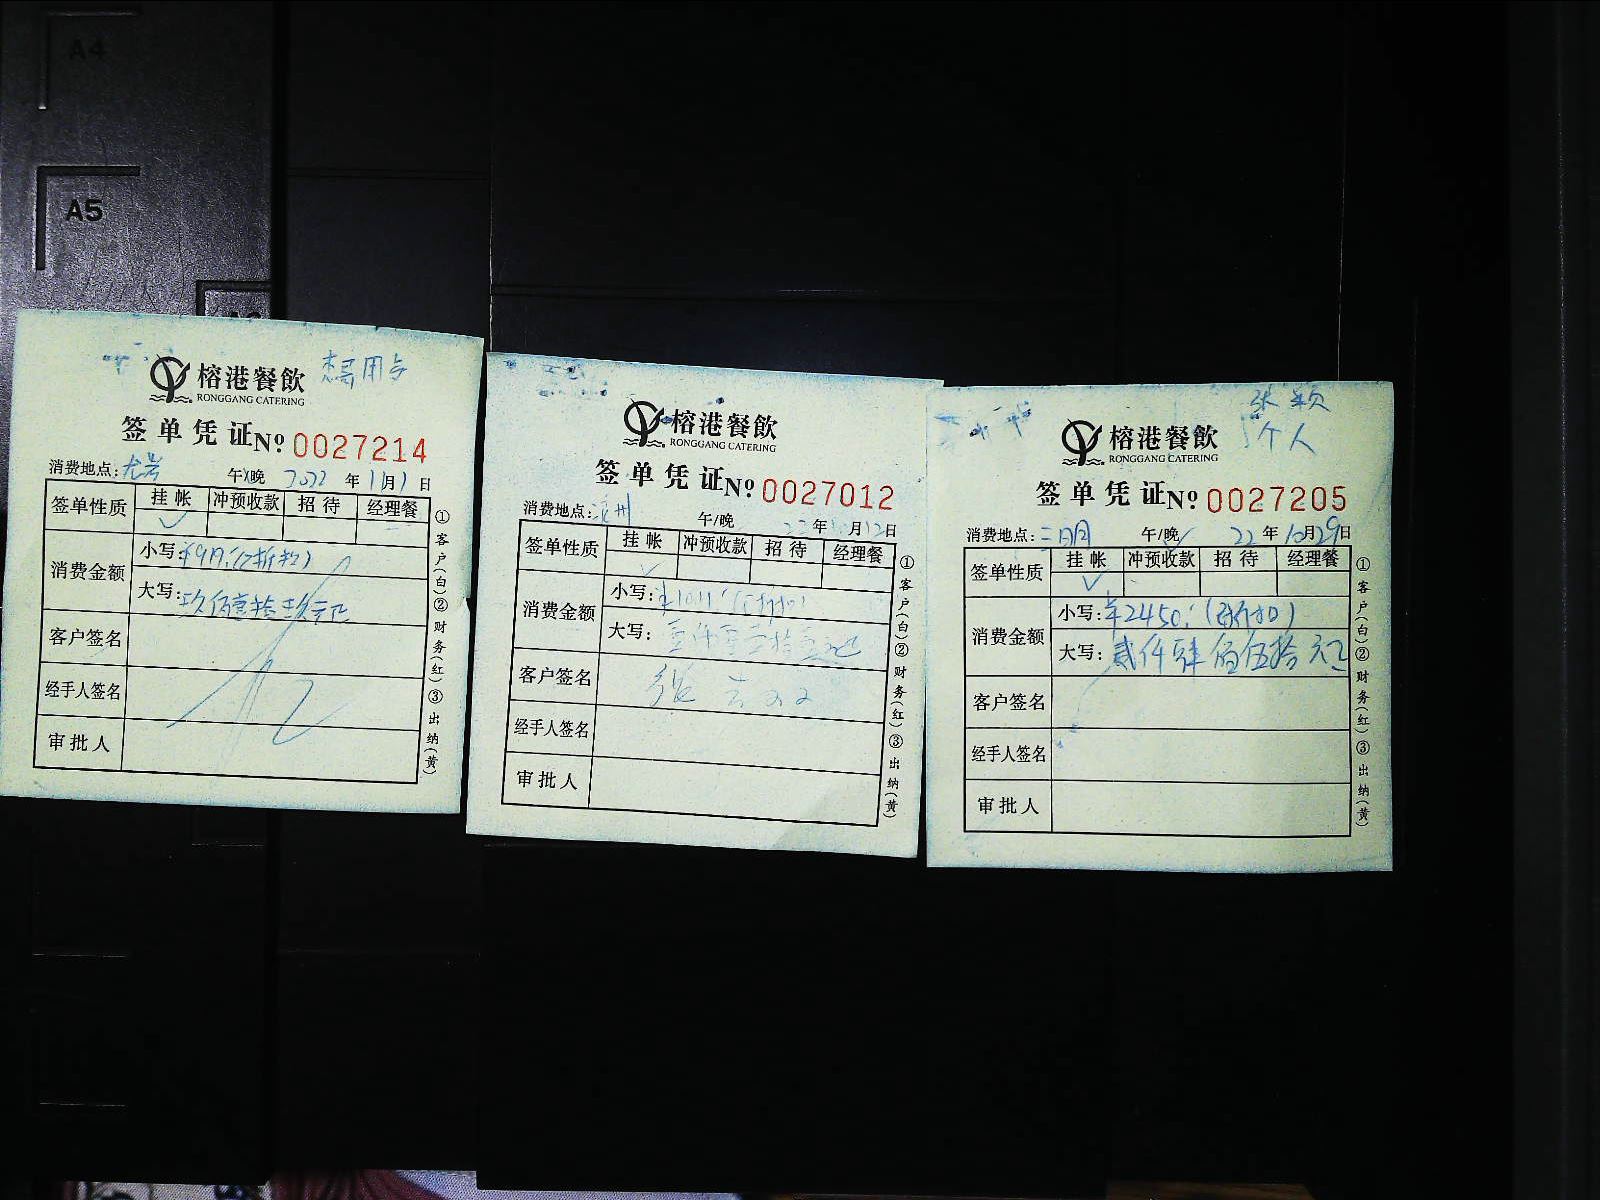 A4
A5
榕港餐飲
RONGGANG CATERING
签单凭证 № 0027214
消费地点: 午/晚 2022 年 11月1日
签单性质 挂帐 冲预收款 招待 经理餐
消费金额
小写:
大写: 玖佰壹拾玖元
客户签名
经手人签名
审批人
①客户(白)②财务(红)③出纳(黄)
榕港餐飲
RONGGANG CATERING
签单凭证 № 0027012
消费地点: 州 午/晚 22 年 月12日
签单性质 挂帐 冲预收款 招待 经理餐
消费金额
小写:
大写:
客户签名
经手人签名
审批人
①客户(白)②财务(红)③出纳(黄)
张颖
个人
榕港餐飲
RONGGANG CATERING
签单凭证 № 0027205
消费地点: 三明 午/晚 22 年 10月29日
签单性质 挂帐 冲预收款 招待 经理餐
消费金额
小写: ¥2450.
大写: 贰仟肆佰伍拾元
客户签名
经手人签名
审批人
①客户(白)②财务(红)③出纳(黄)